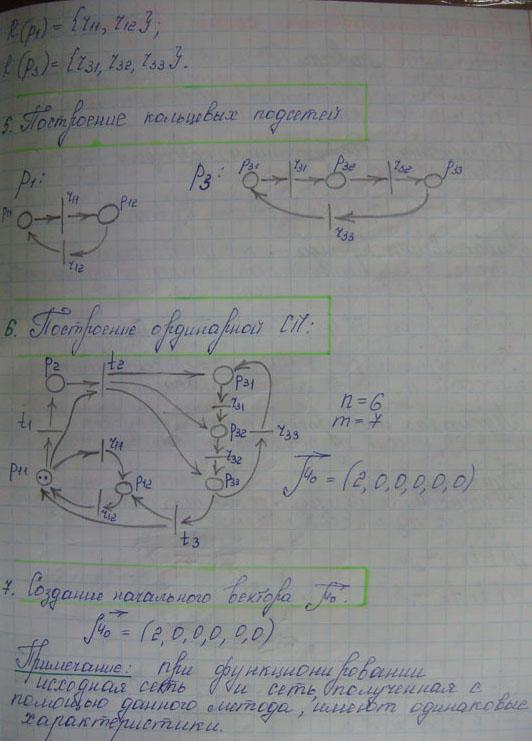 R(p1) = {r11, r12};
R(p3) = {r31, r32, r33}.
5. Построение кольцевых подсетей
p1:
p11 r11 p12
r12
p3: p31 r31 p32 r32 p33
r33
6. Построение ординарной СП:
p2 t2
p31
t1 r31
r11 p32 r33
p11 p12 r32
r12 p33
t3
n = 6
m = 7
μ0 = (2, 0, 0, 0, 0, 0)
7. Создание начального вектора μ0.
μ0 = (2, 0, 0, 0, 0, 0)
Примечание: при функционировании
исходная сеть и сеть, полученная с
помощью данного метода, имеют одинаковые
характеристики.